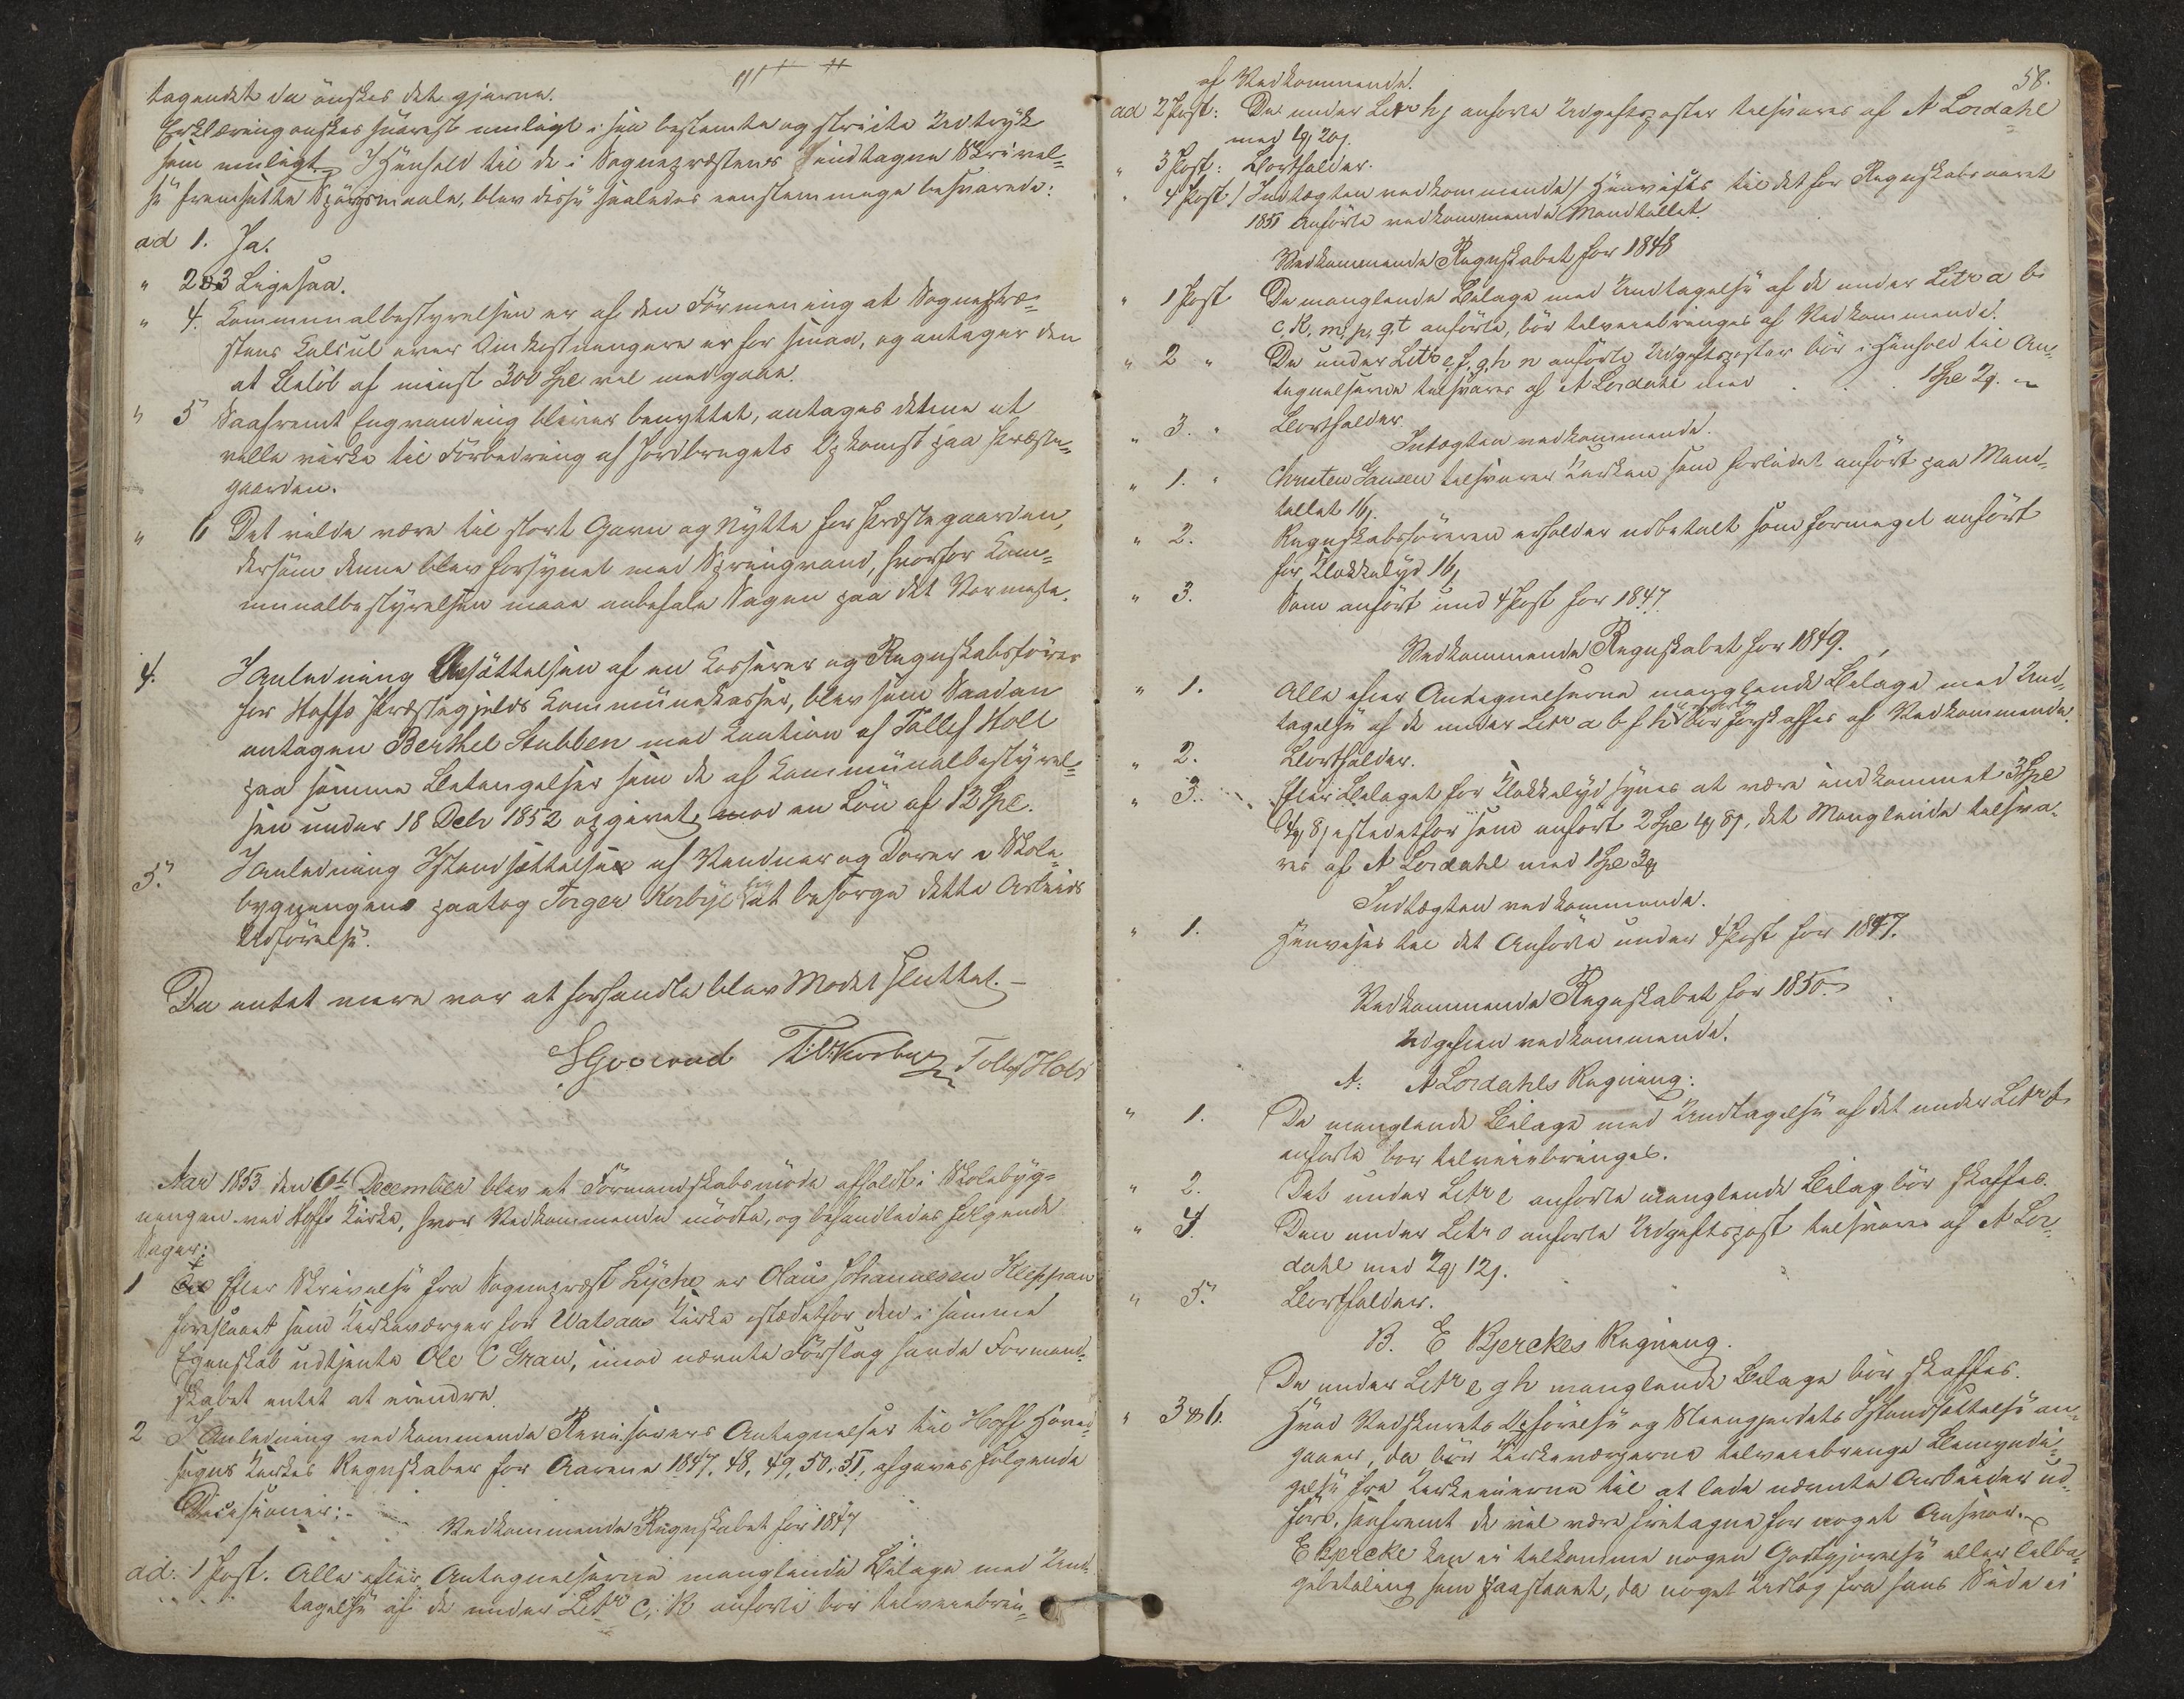 tagendet da önskes det gjerne.
Erklæring önskes snarest muligt i saa bestemte og stricte Udtryk
som muligt. I Henhold til de i Sognepræstens indtagne Skrivel=
se fremsatte Spörgsmaale, blev disse saaledes eenstemmige besvarede:
ad 1. Ja.
" 2 & 3 Ligesaa.
" 4. Communalbestyrelsen er af den Förmening at Sognepræ=
stens Calcul over Omkostningerne er for smaa, og antager den
at Belöb af minst 300 Spe vil medgaae.
" 5 Saafremt Engvanding bliver benyttet, antages denne at
ville virke til Forbedring af Jordbrugets Opkomst paa Præste=
gaarden.
" 6 Det vilde være til stort Gavn og Nytte for Præstegaarden,
dersom denne blev forsynet med Springvand, hvorfor Com=
munalbestyrelsen maae anbefale Sagen paa det Varmeste.
4. I Anledning Ansættelsen af en Casserer og Regnskabsförer
for Hoffs Præstegjelds Communekasser, blev som Saadan
antagen Berthel Stubben med Caution af Tollef Holt
paa samme Betingelser som de af Communalbestyrel=
sen under 18 Decbr 1852 opgivet, mod en Lön af 12 Spe.
5. I Anledning Istandsættelsen af Vinduer og Dorer i Skole
bygningen paatog Torger Korbye sig at besorge dette Arbeids
Udförelse.
Da intet mere var at forhandle blev Mödet sluttet. –
Tollef Holt
Aar 1853 den 6te December blev et Formandskabsmöde afholdt i Skolebyg=
ningen ved Hoffs Kirke, hvor Vedkommende mödte, og behandledes følgende
Sager:
1 Efter Skrivelse fra Sognepræst Lyche er Olaus Johannesen Kleppan
foreslaaet som Kirkeværger for Valsaas Kirke istædetfor den i samme
Egenskab udtjente Ole C Gran, imod nævnte Förslag havde Formand=
skabet intet at erindre.
2 I Anledning vedkommende Revisorers Antegnelser til Hoff Hoved=
sogns Kirkes Regnskaber for Aarene 1847, 48, 49, 50, 51, afgaves følgende
Decisioner: –
Vedkommende Regnskabet for 1847
ad. 1 Post. Alle efter Antegnelserne manglende Bilage med Und=
tagelse af de under Litr c, k anforte bör tilveiebrin=
58.
af Vedkommende.
ad 2 Post: De under Litr h j anforte Udgiftsposter tilsvares af A Lordahl
med
" 3 Post: Bortfalder.
" 4 Post / Indtægten vedkommende / Henvises til det for Regnskabsaaret
1851 Anförte vedkommende Mandtallet.
Vedkommende Regnskabet for 1848
" 1 Post De manglende Bilage med Undtagelse af de under Litr a b
c, k, m, p, q, t anförte, bör tilveiebringes af Vedkommende.
" 2 " De under Litr e, f, g, h n anförte Udgiftsposter bör i Henhold til An=
tegnelserne tilsvares af A Lordahl med . . . 1 Spe 2
" 3. " Bortfalder.
Indtægten vedkommende.
" 1. " Christen Hansen tilsvarer Kirken som forlidet anfört paa Mand=
tallet 16
" 2. Regnskabsföreren erholder udbetalt som formeget anfört
for Klokkelyd 16
" 3. Som anfört und 4 Post for 1847.
Vedkommende Regnskabet for 1849.
" 1. Alle efter Antegnelserne manglende Bilage med Und=
tagelse af de under Litr a b f h bör forskaffes af Vedkommende.
" 2. Bortfalder.
" 3. Efter Bilaget for Klokkelyd synes at være indkommet 3 Spe
istedetfor som anfört 2 Spe, det Manglende tilsva=
res af A Lordahl med 1 Spe 3
Indtægten vedkommende.
" 1. Henvises til det Anforte under 4 Post for 1847.
Vedkommende Regnskabet for 1850.
Udgiften vedkommende.
A. A Lordahls Regning:
" 1. De manglende Bilage med Undtagelse af det under Litr
anforte bor tilveiebringes.
" 2. Det under Litr e anforte manglende Bilag bör skaffes.
" 4. Den under Litr o anforte Udgiftspost tilsvares af A Lor=
dahl med 2 12
" 5. Bortfalder.
B. E Bjerckes Regning.
De under Litr e g h manglende Bilage bör skaffes.
" 3 & 6. Hvad Vedskurets Opförelse og Steengjerdets Istandsættelse an=
gaaer, da bör Kirkeværgerne tilveiebringe Bemyndi=
gelse fra Kirkeeierne til at lade nævnte Arbeider ud=
före, saafremt de vil være fritagne for noget Ansvar.
E Bjercke kan ei tilkomme nogen Godtgjorelse eller Tilba=
gebetaling som Paastaaet, da noget Udlag fra hans Side ei